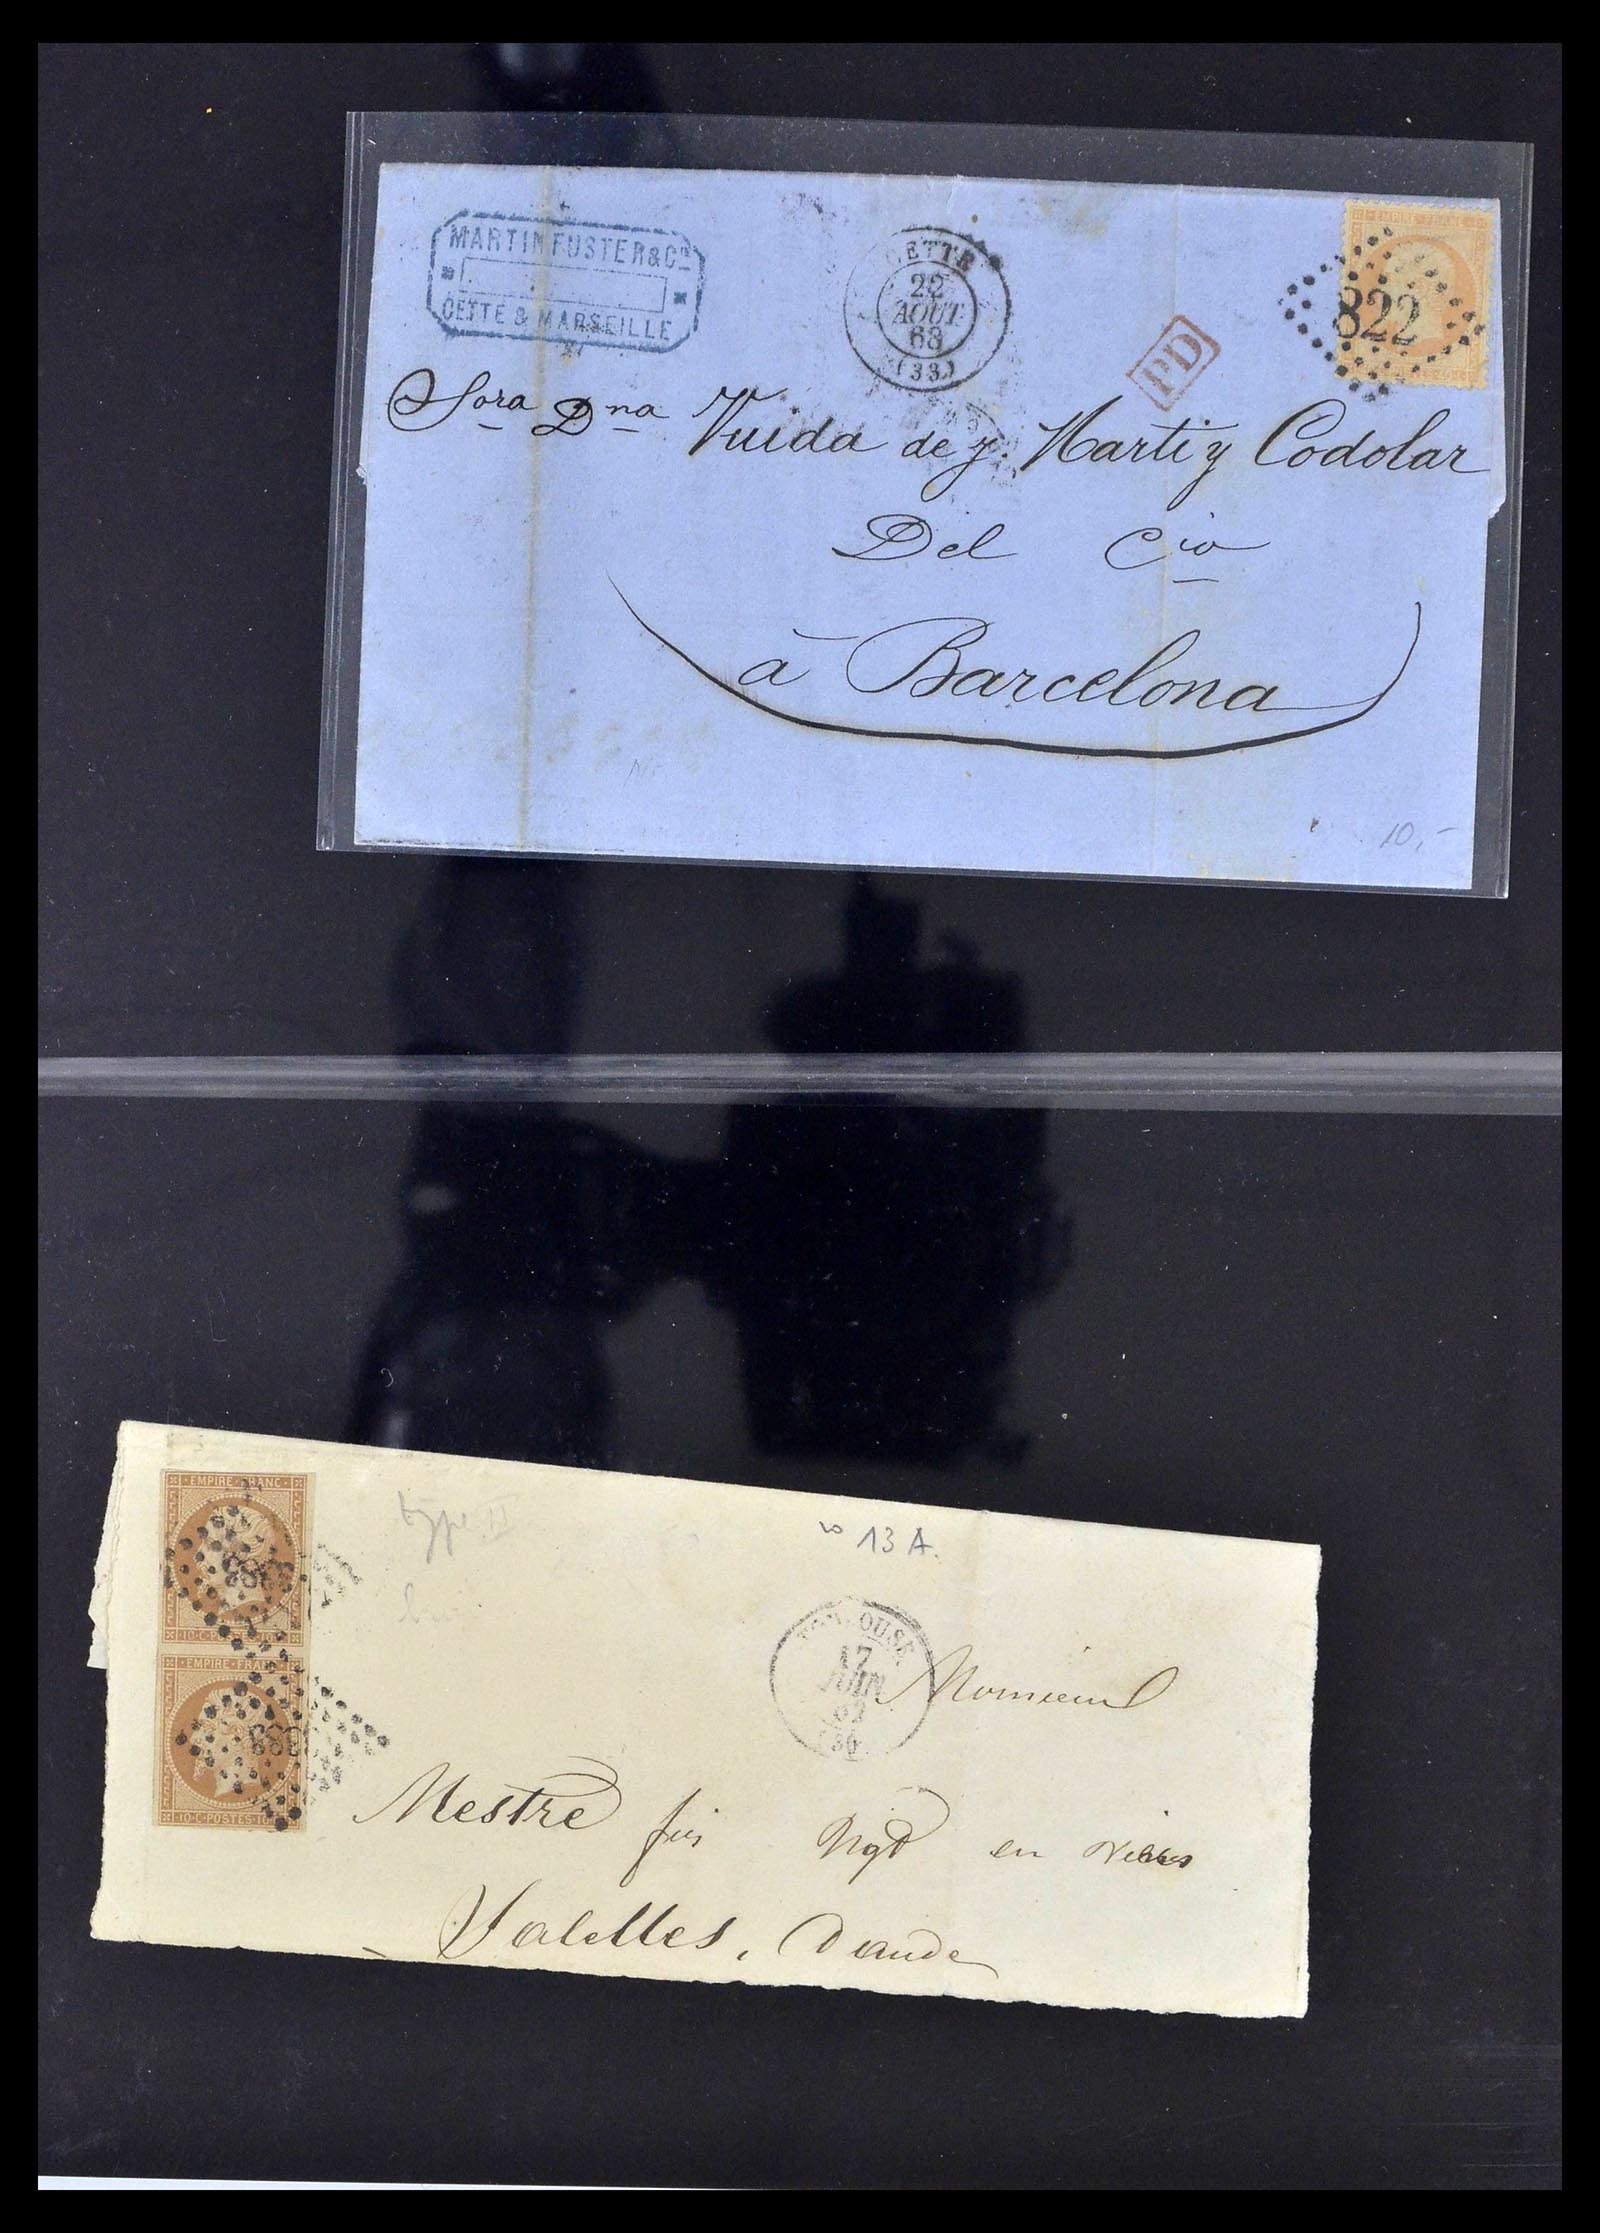 MARTIN FUSTER & Cie
CETTE & MARSEILLE
CETTE
22
AOUT
63
(33)
PD
EMPIRE FRANC
822
Sora Dna Vuida de J. Marti y Codolar
Del Cio
à Barcelona
10,-
EMPIRE · FRANC
10 · C · POSTES · 10
EMPIRE · FRANC
10 · C · POSTES · 10
type II
13 A.
TOULOUSE
17
JUIN
(30)
Monsieur
Mestre fils Ngt en
Salelles, d'aude